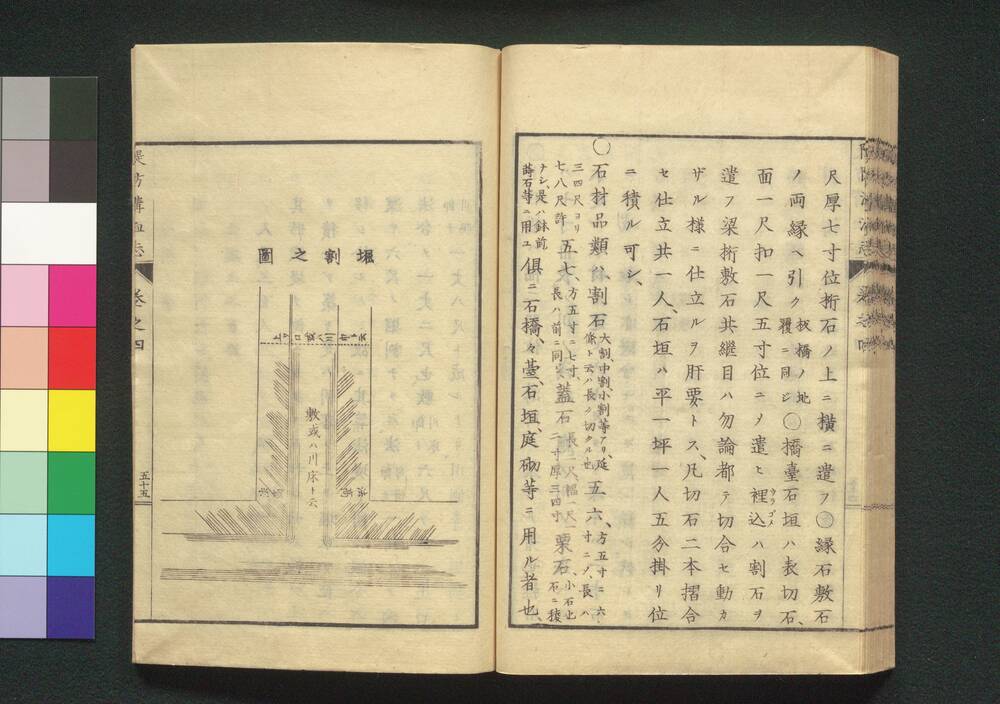 尺厚七寸位桁石ノ上ニ横ニ遣フ〇縁石敷石
ノ両縁ヘ引ク板橋ノ地覆ニ同シ〇橋臺石垣ハ表切石、
面一尺扣一尺五寸位ニメ遣ヒ裡込ハ割石ヲ
ウラゴメ
遣フ梁桁敷石共継目ハ勿論都テ切合セ動カ
ザル様ニ仕立ルヲ肝要トス、凡切石二本摺合
セ仕立共一人、石垣ハ平一坪一人五分掛リ位
ニ積ル可シ、
〇石材品類
割石大割、中割、小割等アリ、
五六、方五寸ニ六寸ニメ、長ハ三四尺ヨリ七八尺許、
五七、方五寸ニ七寸、長ハ前ニ同シ、
蓋石長二尺、幅一尺二寸厚三四寸、
栗石小石也
ナシ、是ハ
蒔石等ニ用ユ、
俱ニ石橋、々臺、石垣、庭砌等ニ用ル者也、
五十五
堀割之圖
敷或ハ川床ト云